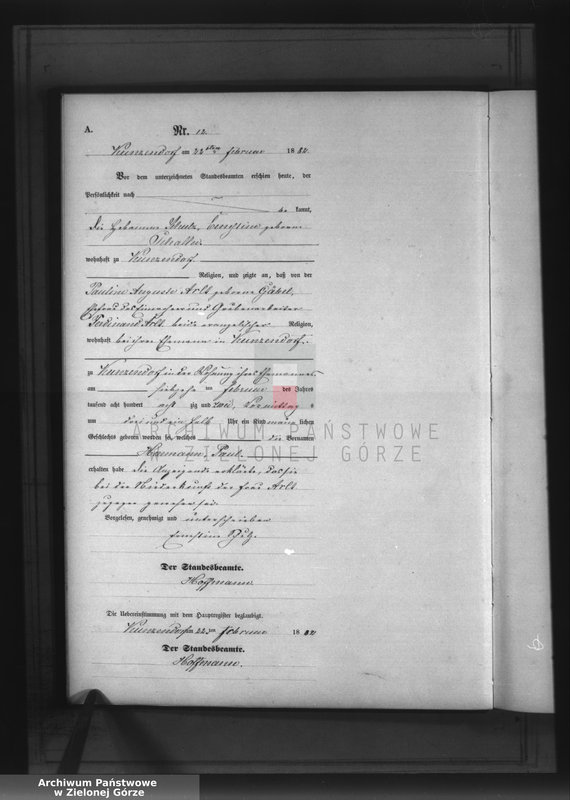 A.
Nr. 12.
Kunzendorf am 22ten Februar 1882.
Vor dem unterzeichneten Standesbeamten erschien heute, der
Persönlichkeit nach
be kannt,
die Hebamme Schulz, Ernestine geborene
wohnhaft zu Kunzendorf
Religion, und zeigte an, daß von der
Pauline Auguste Arlt geborene Göbel,
Ehefrau des Einwohners und Grubenarbeiter
Ferdinand Arlt, beide evangelischer Religion,
wohnhaft bei ihrem Ehemann in Kunzendorf,
zu Kunzendorf in der Wohnung ihres Ehemannes
am siebzehn ten Februar des Jahres
tausend acht hundert acht zig und zwei, Vormittag s
um drei und ein halb Uhr ein Kind männ lichen
Geschlechts geboren worden sei, welches die Vornamen
Hermann, Paul
erhalten habe. Die Anzeigende erklärte, daß sie
bei der Niederkunft der Frau Arlt
zugegen gewesen sei.
Vorgelesen, genehmigt und unterschrieben
Ernestine Schulz.
Der Standesbeamte.
Hoffmann
Die Uebereinstimmung mit dem Hauptregister beglaubigt.
Kunzendorf am 22ten Februar 1882
Der Standesbeamte.
Hoffmann.
ARCHIWUM PAŃSTWOWE
W ZIELONEJ GÓRZE
Archiwum Państwowe
w Zielonej Górze